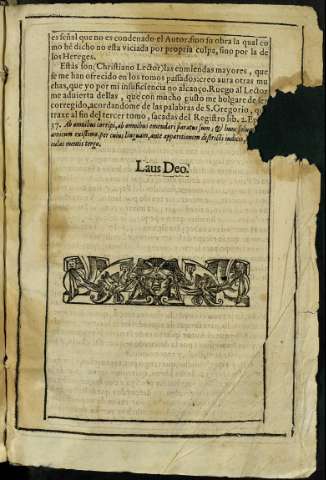 es señal que no es condenado el Autor, sino su obra la qual co
mo hè dicho no esta viciada por propria culpa, sino por la de
los Hereges.
Estas son, Christiano Lector, las enmiendas mayores, que
se me han ofrecido en los tomos passados: creo aura otras mu
chas, que yo por mi insuficiencia no alcanço. Ruego al Lector
me aduierta dellas, que con mucho gusto me holgare de ser
corregido, acordandome de las palabras de S. Gregorio, q
traxe al fin del tercer tomo, sacadas del Registro lib. 2. Ep
37. Ab omnibus corripi, ab omnibus emendari paratus sum, & hunc solum
amicum existimo, per cuius linguam, ante apparitionem districti iudicis,
culas mentis tergo.
Laus Deo.